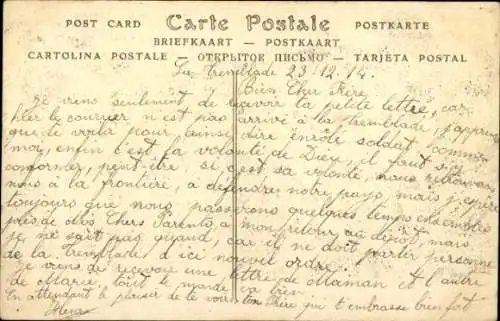 POST CARD Carte Postale POSTKARTE
BRIEFKAART — POSTKAART
CARTOLINA POSTALE — ОТКРЫТОЕ ПИСЬМО — TARJETA POSTAL
La Tremblade 23.12.14.
Bien Cher Frère
Je viens seulement de recevoir ta petite lettre, car
hier le courrier n'est pas arrivé à la tremblade, j'apprends
que te voilà pour ainsi dire enrôlé soldat, comme
moi, enfin c'est la volonté de Dieu, il faut s'y
conformer, peut-être si c'est sa volonté, nous retrouverons
nous à la frontière, à défendre notre pays, mais j'espère
toujours que nous passerons quelques temps ensembles
près de nos Chers Parents, à mon retour au dépôt, mais
je ne sais pas quand, car il ne doit partir personne
de la Tremblade d'ici nouvel ordre.
Je viens de recevoir une lettre de Maman et l'autre
de Marie, tout le monde va bien
En attendant le plaisir de te voir ton Frère qui t'embrasse bien fort